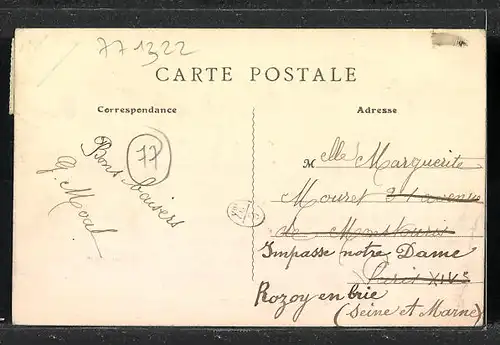 771322
CARTE POSTALE
Correspondance
Adresse
77
Bons baisers
G. Moul
Melle Marguerite
Mouret 31 avenue
de Montsouris
Impasse notre Dame
Paris XIVe
Rozoy en brie
(Seine et Marne)